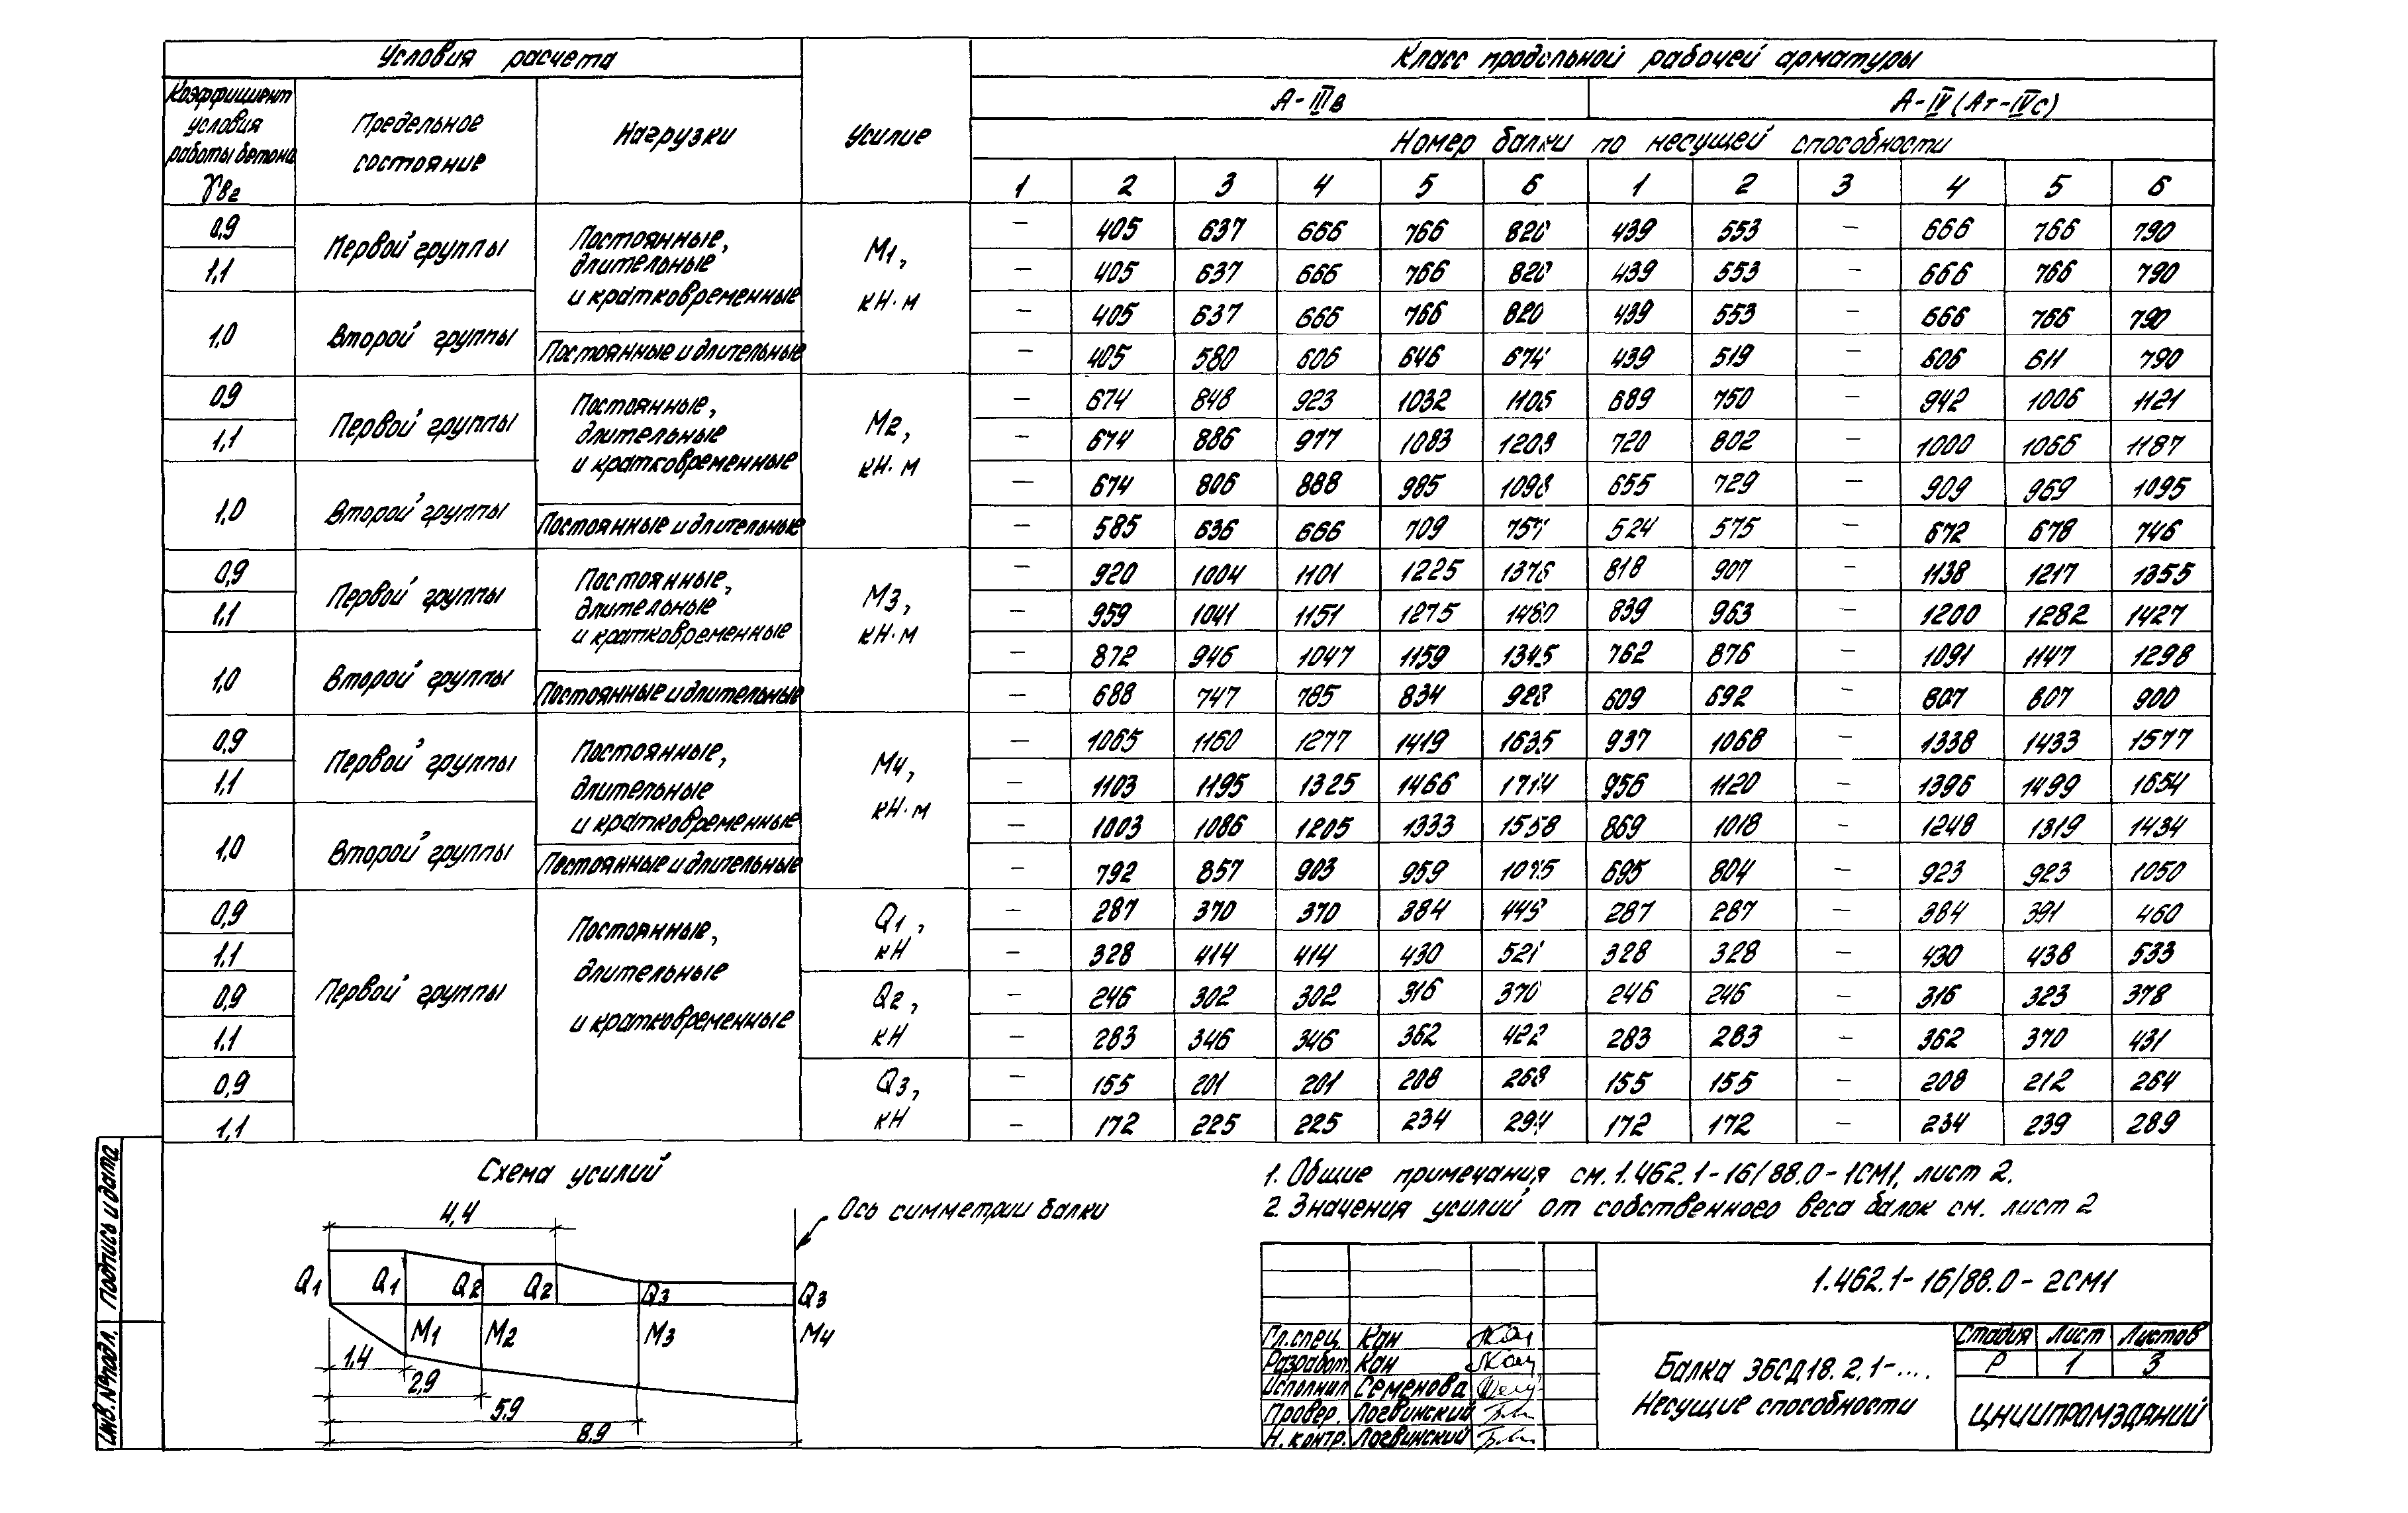 Условия расчета
Класс продольной рабочей арматуры
Коэффициент условия работы бетона γв2
Предельное состояние
Нагрузки
Усилие
А-IIIв
А-IV (Ат-IVс)
Номер балки по несущей способности
1 2 3 4 5 6 1 2 3 4 5 6
0,9 Первой группы Постоянные, длительные и кратковременные М1, кН·м – 405 637 666 766 820 439 553 – 666 766 790
1,1 – 405 637 666 766 820 439 553 – 666 766 790
1,0 Второй группы – 405 637 666 766 820 439 553 – 666 766 790
Постоянные и длительные – 405 580 606 646 674 439 519 – 606 611 790
0,9 Первой группы Постоянные, длительные и кратковременные М2, кН·м – 674 848 923 1032 1105 689 750 – 942 1006 1121
1,1 – 674 886 977 1083 1208 720 802 – 1000 1066 1187
1,0 Второй группы – 674 806 888 985 1098 655 729 – 909 969 1095
Постоянные и длительные – 585 636 666 709 757 524 575 – 672 678 746
0,9 Первой группы Постоянные, длительные и кратковременные М3, кН·м – 920 1004 1101 1225 1376 818 907 – 1138 1217 1355
1,1 – 959 1041 1151 1275 1480 839 963 – 1200 1282 1427
1,0 Второй группы – 872 946 1047 1159 1345 762 876 – 1091 1147 1298
Постоянные и длительные – 688 747 785 834 928 609 692 – 807 807 900
0,9 Первой группы Постоянные, длительные и кратковременные М4, кН·м – 1065 1160 1277 1419 1635 937 1068 – 1338 1433 1577
1,1 – 1103 1195 1325 1466 1714 956 1120 – 1396 1499 1654
1,0 Второй группы – 1003 1086 1205 1333 1558 869 1018 – 1248 1319 1434
Постоянные и длительные – 792 857 903 959 695 804 – 923 923 1050
0,9 Первой группы Постоянные, длительные и кратковременные Q1, кН – 287 370 370 384 449 287 287 – 384 391 460
1,1 – 328 414 414 430 521 328 328 – 430 438 533
0,9 Q2, кН – 246 302 302 316 370 246 246 – 316 323 378
1,1 – 283 346 346 362 422 283 283 – 362 370 431
0,9 Q3, кН – 155 201 201 208 268 155 155 – 208 212 264
1,1 – 172 225 225 234 294 172 172 – 234 239 289
Схема усилий
4,4
Ось симметрии балки
Q1 Q1 Q2 Q2 Q3 Q3
М1 М2 М3 М4
1,4
2,9
5,9
8,9
1. Общие примечания см. 1.462.1-16/88.0-1СМ1, лист 2.
2. Значения усилий от собственного веса балок см. лист 2
1.462.1-16/88.0-2СМ1
Гл.спец. Кан
Разработ. Кан
Исполнил Семенова
Провер. Логвинский
Н.контр. Логвинский
Балка 3БСД18.2.1-....
Несущие способности
Стадия Лист Листов
Р 1 3
ЦНИИПРОМЗДАНИЙ
Подпись и дата
Инв.№подл.